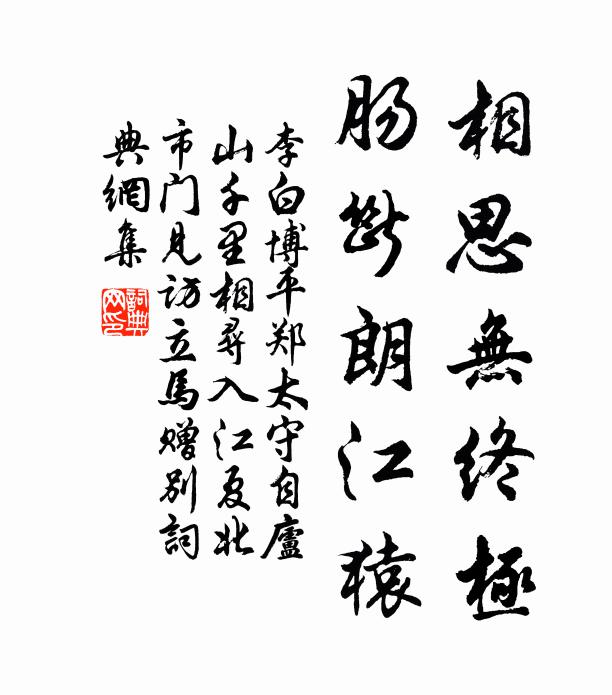 相思無終極
肠斷朗江猿
李白博平郑太守自廬
山千里相尋入江夏北
市门见访立馬赠别詞
典網集
詞典
网印